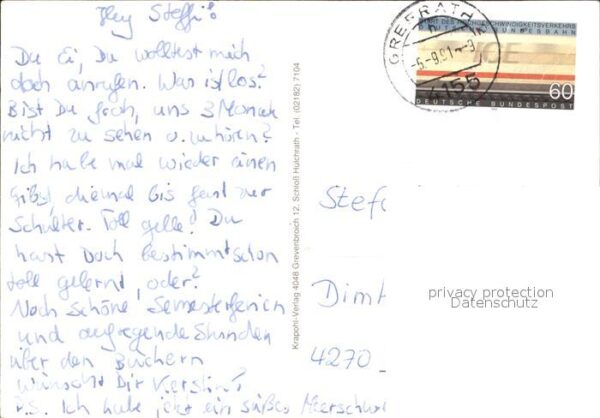 Hey Steffi!
Du Ei, Du wolltest mich
doch anrufen. Was ist los?
Bist Du froh, uns 3 Monate
nicht zu sehen o. zu hören?
Ich habe mal wieder einen
Gips, diesmal bis fast zur
Schulter. Toll gelle! Du
hast Doch bestimmt schon
toll gelernt, oder?
Noch schöne Semesterferien
und aufregende Stunden
über den Büchern
wünscht Dir Kerstin!
P.S. Ich habe jetzt ein süßes Meerschw
Krappohl-Verlag 4048 Grevenbroich 12, Schloß Hülchrath - Tel. (02182) 7104
GREFRATH
-5.-9.91
4155
MIT DES HOCHGESCHWINDIGKEITSVERKEHRS
DEUTSCHE BUNDESBAHN
ICE
60
DEUTSCHE BUNDESPOST
Stef
Dimt
4270
privacy protection
Datenschutz